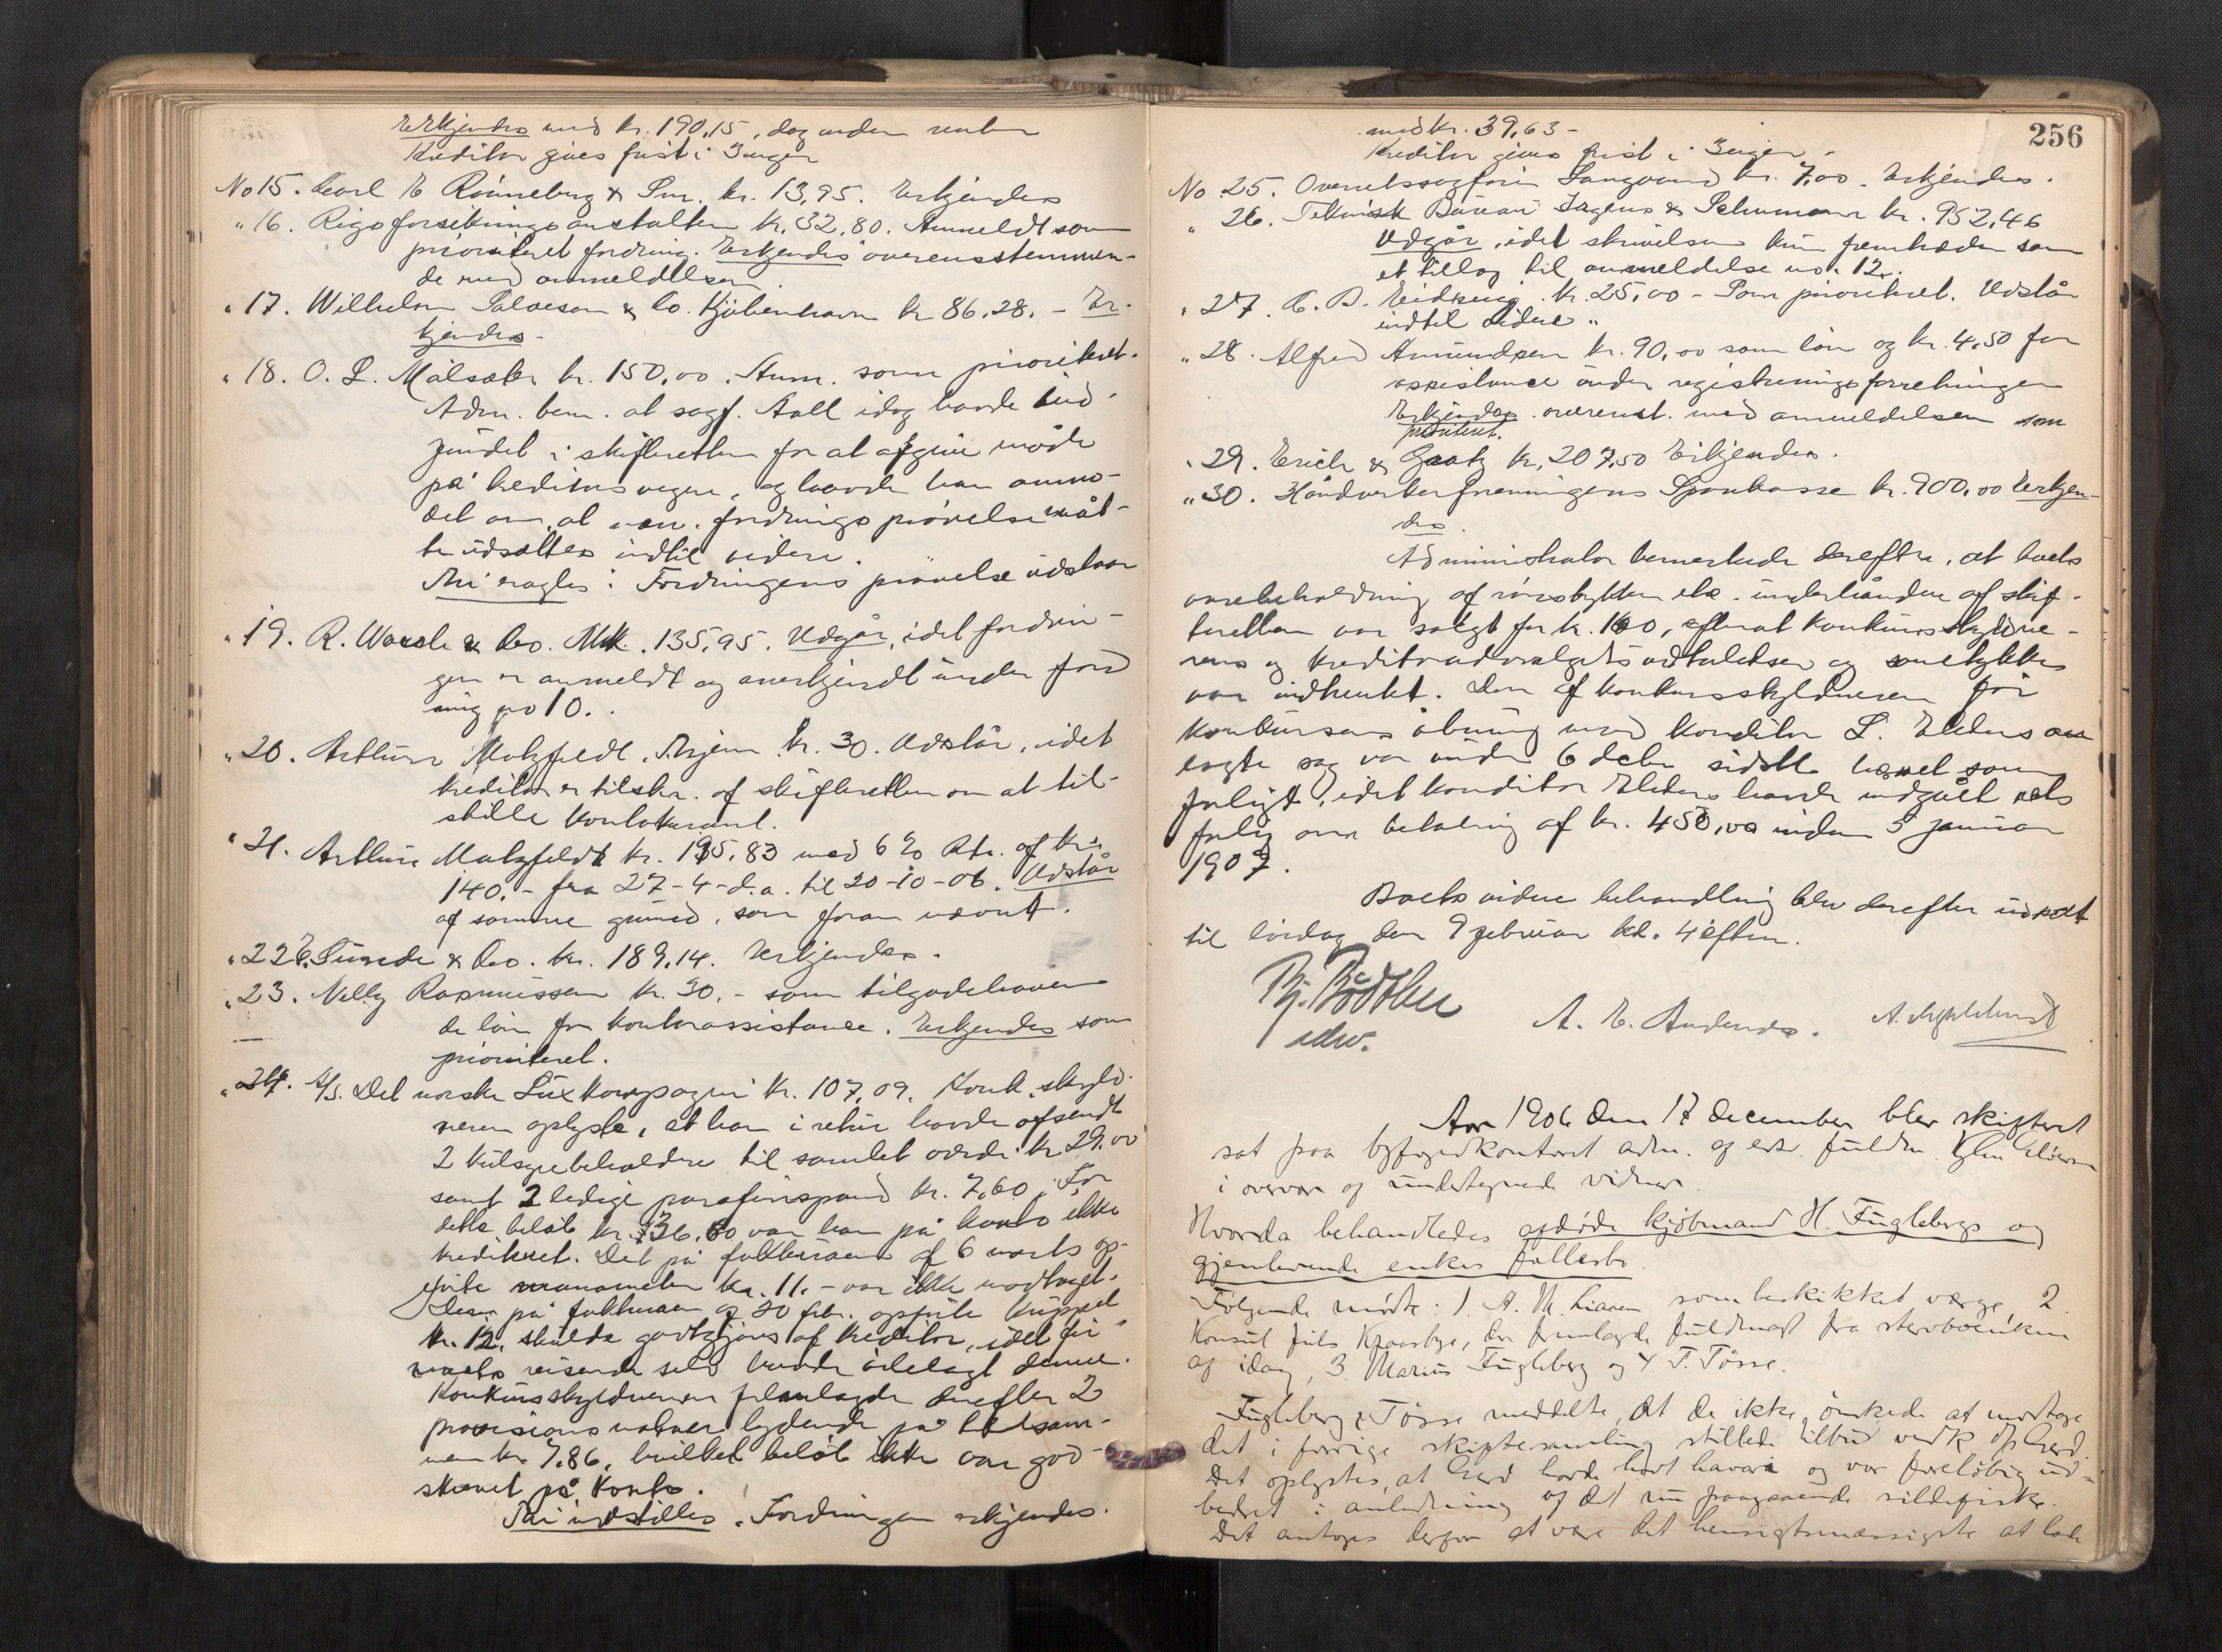 Erkjendes med kr. 190,15, dog uden renter
Kreditor gives frist i 3 uger
No 15. Carl E Rönneberg & Sön. kr. 13,95. Erkjendes
" 16. Rigsforsikringsanstalten kr. 32,80. Anmeldt som
prioriteret fordring. Erkjendes overensstemmen-
de med anmeldelsen.
" 17. Wilhelm Salvesen & Co. Kjöbenhavn kr 86,28. - Er-
kjendes.
" 18. O. L. Målsæter kr. 150,00. Anm. som prioriteret.
Adm. bem. at sagf. Aall idag havde ind-
fundet i skifteretten for at afgive möde
på kreditors vegne, og havde han anmo-
det om, at nævn. fordrings prövelse måt-
te udsættes indtil videre.
Thi vragtes: Fordringens prövelse udstaar
" 19. R. & Co. Mk. 135,95. Udgår, idet fordrin-
gen er anmeldt og anerkjendt under ford
ning no 10.
" 20. Arthur Motzfeldt, kr. 30. Udstår, idet
kreditor er tilskr. af skifteretten om at til-
stille kontokurant.
" 21. Arthur Motzfeldt kr. 195,83 med 6 % Rtr. af kr.
140.- fra 27-4-d.a. til 20-10-06. Udstår
af samme grund, som foran nævnt.
" 22 E. Sunde & Co. kr. 189,14. Erkjendes.
" 23. Nelly Rasmussen kr. 30.- som tilgodehaven
de lön for kontorassistance. Erkjendes som
prioriteret.
" 24. A/S. Det norske Luxkompagni kr. 107,09. Konk. skyld-
neren oplyste, at han i retur havde afsendt
2 kulsyrebeholdere til samlet værdi kr 29,00
samt 2 ledige parafinspand kr. 7,60. For
dette belöb kr. 36,60 var han på konto ikke
krediteret. Det på fakturaen af 6 marts op-
förte manometer kr. 11.- var ikke modtaget.
Den på fakturaen af 20 febr. opförte kuppel
kr. 12, skulde godtgjöres af kreditor, idet fir-
maets reisende selv havde ödelagt denne.
Konkursskyldneren fremlagde derefter 2
provisionsnotaer lydende på tilsam-
men kr. 7,86, hvilket belöb ikke var god-
skrevet på konto.
Thi indstilles: Fordringen erkjendes.
256
med kr. 39,63 -
Kreditor gives frist i 3 uger -
No 25. Overretssagförer Langvand kr. 7,00. Erkjendes.
" 26. Teknisk Bureau & Schumann kr. 952,46
Udgår, idet skrivelsen kun fremtræder som
et tillæg til anmeldelse no. 12.
" 27. Kr. 25,00 - Som prioriteret. Udstår
indtil videre "
" 28. Alfred Amundsen kr. 90,00 som lön og kr. 4,50 for
assistance under registreringsforretningen
Erkjendes overenst. med anmeldelsen som
prioriteret.
" 29. Erich & Graetz kr. 207,50 Erkjendes.
" 30. Håndverkerforeningens Sparkasse kr. 900,00 Erkjen-
des.
Administrator bemerkede derefter, at boets
varebeholdning af rörstykker etc. underhånden af skif-
teretten var solgt for kr. 160, efterat konkursskyldne-
rens og kreditorudvalgets udtalelser og samtykke
var indhentet. Den af konkursskyldneren för
konkursens åbning mod konditor L. Elders an
lagte sag var under 6 debr sidstl. hævet som
forligt, idet konditor Elders havde indgået rets
forlig om betaling af kr. 450,00 inden 5 januar
1907.
Boets videre behandling blev derefter udsat
til lördag den 9 februar kl. 4 eftm.
A. E. Andersen.
Aar 1906 den 17 december blev skifteret
sat paa byfogedkontoret adm. af edsv. fuldm.
i overvær af undertegnede vidner.
Hvorda behandledes afdöde kjöbmand H. Fuglebergs og
gjenlevende enkes fællesbo.
Fölgende mödte: 1. A. M. Liaaen som beskikket værge, 2.
konsul Juls Kraasbye, der fremlagde fuldmagt fra stervboenken
af idag, 3. Marius Fugleberg og 4. T. Tösse.
Fugleberg & Tösse meddelte, at de ikke önskede at modtage
det i forrige skiftesamling stillede tilbud
Det oplystes, at havde havt havari og var forelöbig ud-
bedret i anledning af det nu foregaaende sildefiske.
Det antages derfor at være det hensigtsmæssigste at lade